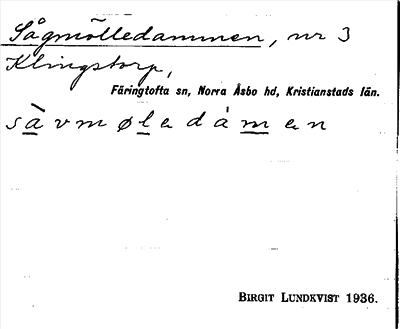 Sågmölledammen, nr 3
Klingstorp,
Färingtofta sn, Norra Åsbo hd, Kristianstads län.
sàvmøledámen
BIRGIT LUNDKVIST 1936.